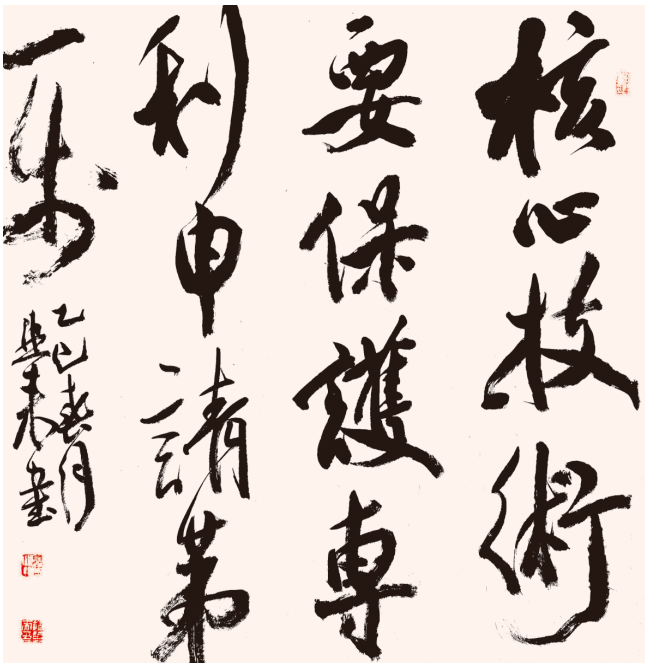 核心技術
要保護専
利申請第
一步
乙巳春月
書